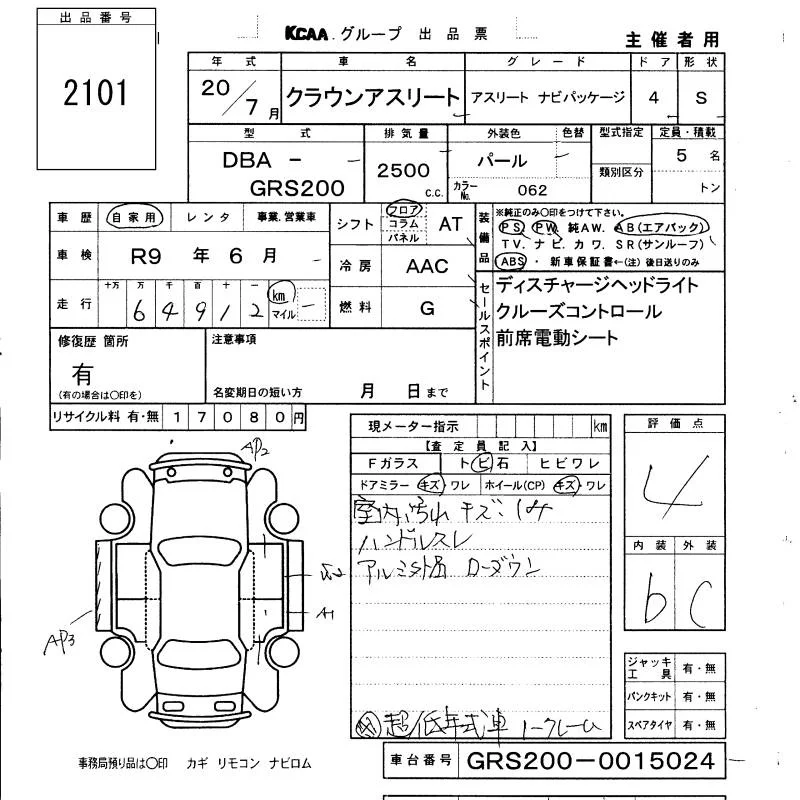 出品番号
2101
KCAA.グループ 出品票
主催者用
年式 車名 グレード ドア 形状
20/7月 クラウンアスリート アスリート ナビパッケージ 4 S
型式 排気量 外装色 色替 型式指定 定員・積載
DBA － GRS200
2500 c.c.
パール
カラーNo. 062
類別区分
5 名
トン
車歴 自家用 レンタ 事業.営業車
車検 R9 年 6 月
走行 十万 万 千 百 十 一
6 4 9 1 2 km マイル
シフト フロア コラム パネル AT
冷房 AAC
燃料 G
装備品
※純正のみ○印をつけて下さい。
PS PW 純AW. AB(エアバック)
TV. ナビ. カワ. SR(サンルーフ)
ABS ・ 新車保証書←(注)後日送りのみ
セールスポイント
ディスチャージヘッドライト
クルーズコントロール
前席電動シート
修復歴 箇所
有
(有の場合は○印を)
注意事項
名変期日の短い方 月 日まで
リサイクル料 有・無 17080円
現メーター指示 km
【査定員記入】
Fガラス トビ石 ヒビワレ
ドアミラー キズ・ワレ ホイール(CP) キズ・ワレ
室内汚れ キズ・
ハンドルスレ
アルミ社外品 ローダウン
超低年式車 ノークレーム
評価点
4
内装 外装
b C
ジャッキ工具 有・無
パンクキット 有・無
スペアタイヤ 有・無
AP2
A1
AP3
事務局預り品は○印 カギ リモコン ナビロム
車台番号 GRS200-0015024